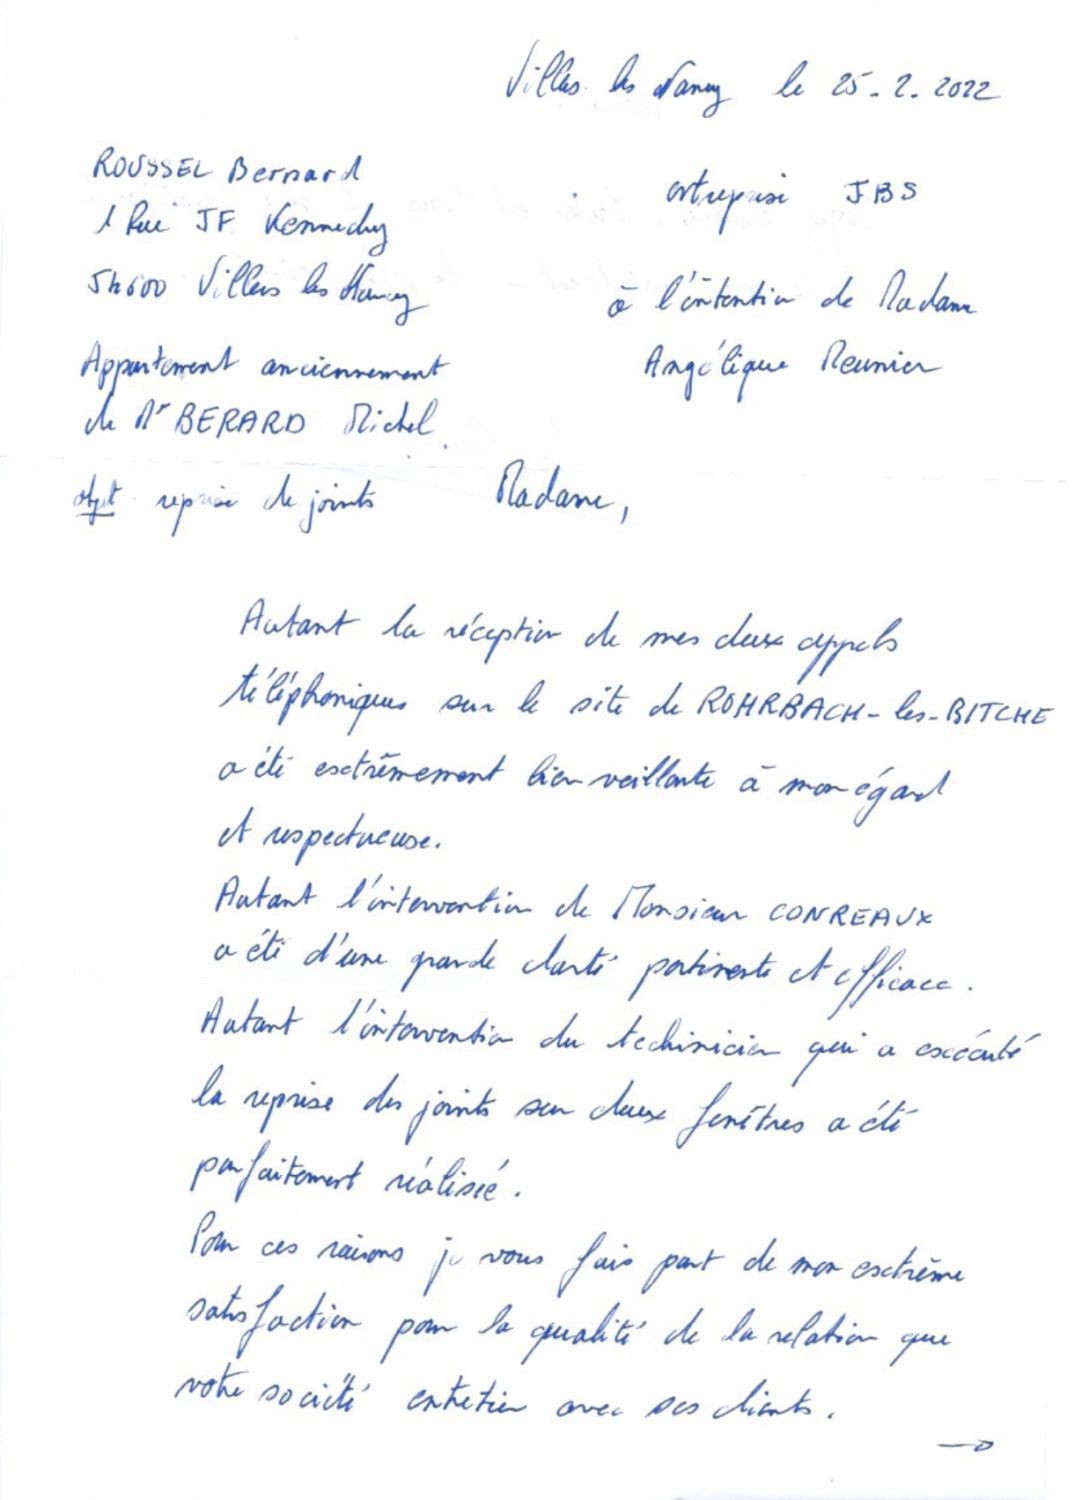 Villers les Nancy le 25-2-2022
ROUSSEL Bernard
1 Rue JF Kennedy
54600 Villers les Nancy
Appartement anciennement
de Mr BERARD Michel
entreprise JBS
à l'intention de Madame
Angélique Meunier
objet reprise de joints
Madame,
Autant la réception de mes deux appels
téléphoniques sur le site de ROHRBACH-les-BITCHE
a été extrêmement bienveillante à mon égard
et respectueuse.
Autant l'intervention de Monsieur CONREAUX
a été d'une grande clarté pertinente et efficace.
Autant l'intervention du techinicien qui a exécuté
la reprise des joints sur deux fenêtres a été
parfaitement réalisée.
Pour ces raisons je vous fais part de mon extrême
satisfaction pour la qualité de la relation que
votre société entretien avec ses clients.
→